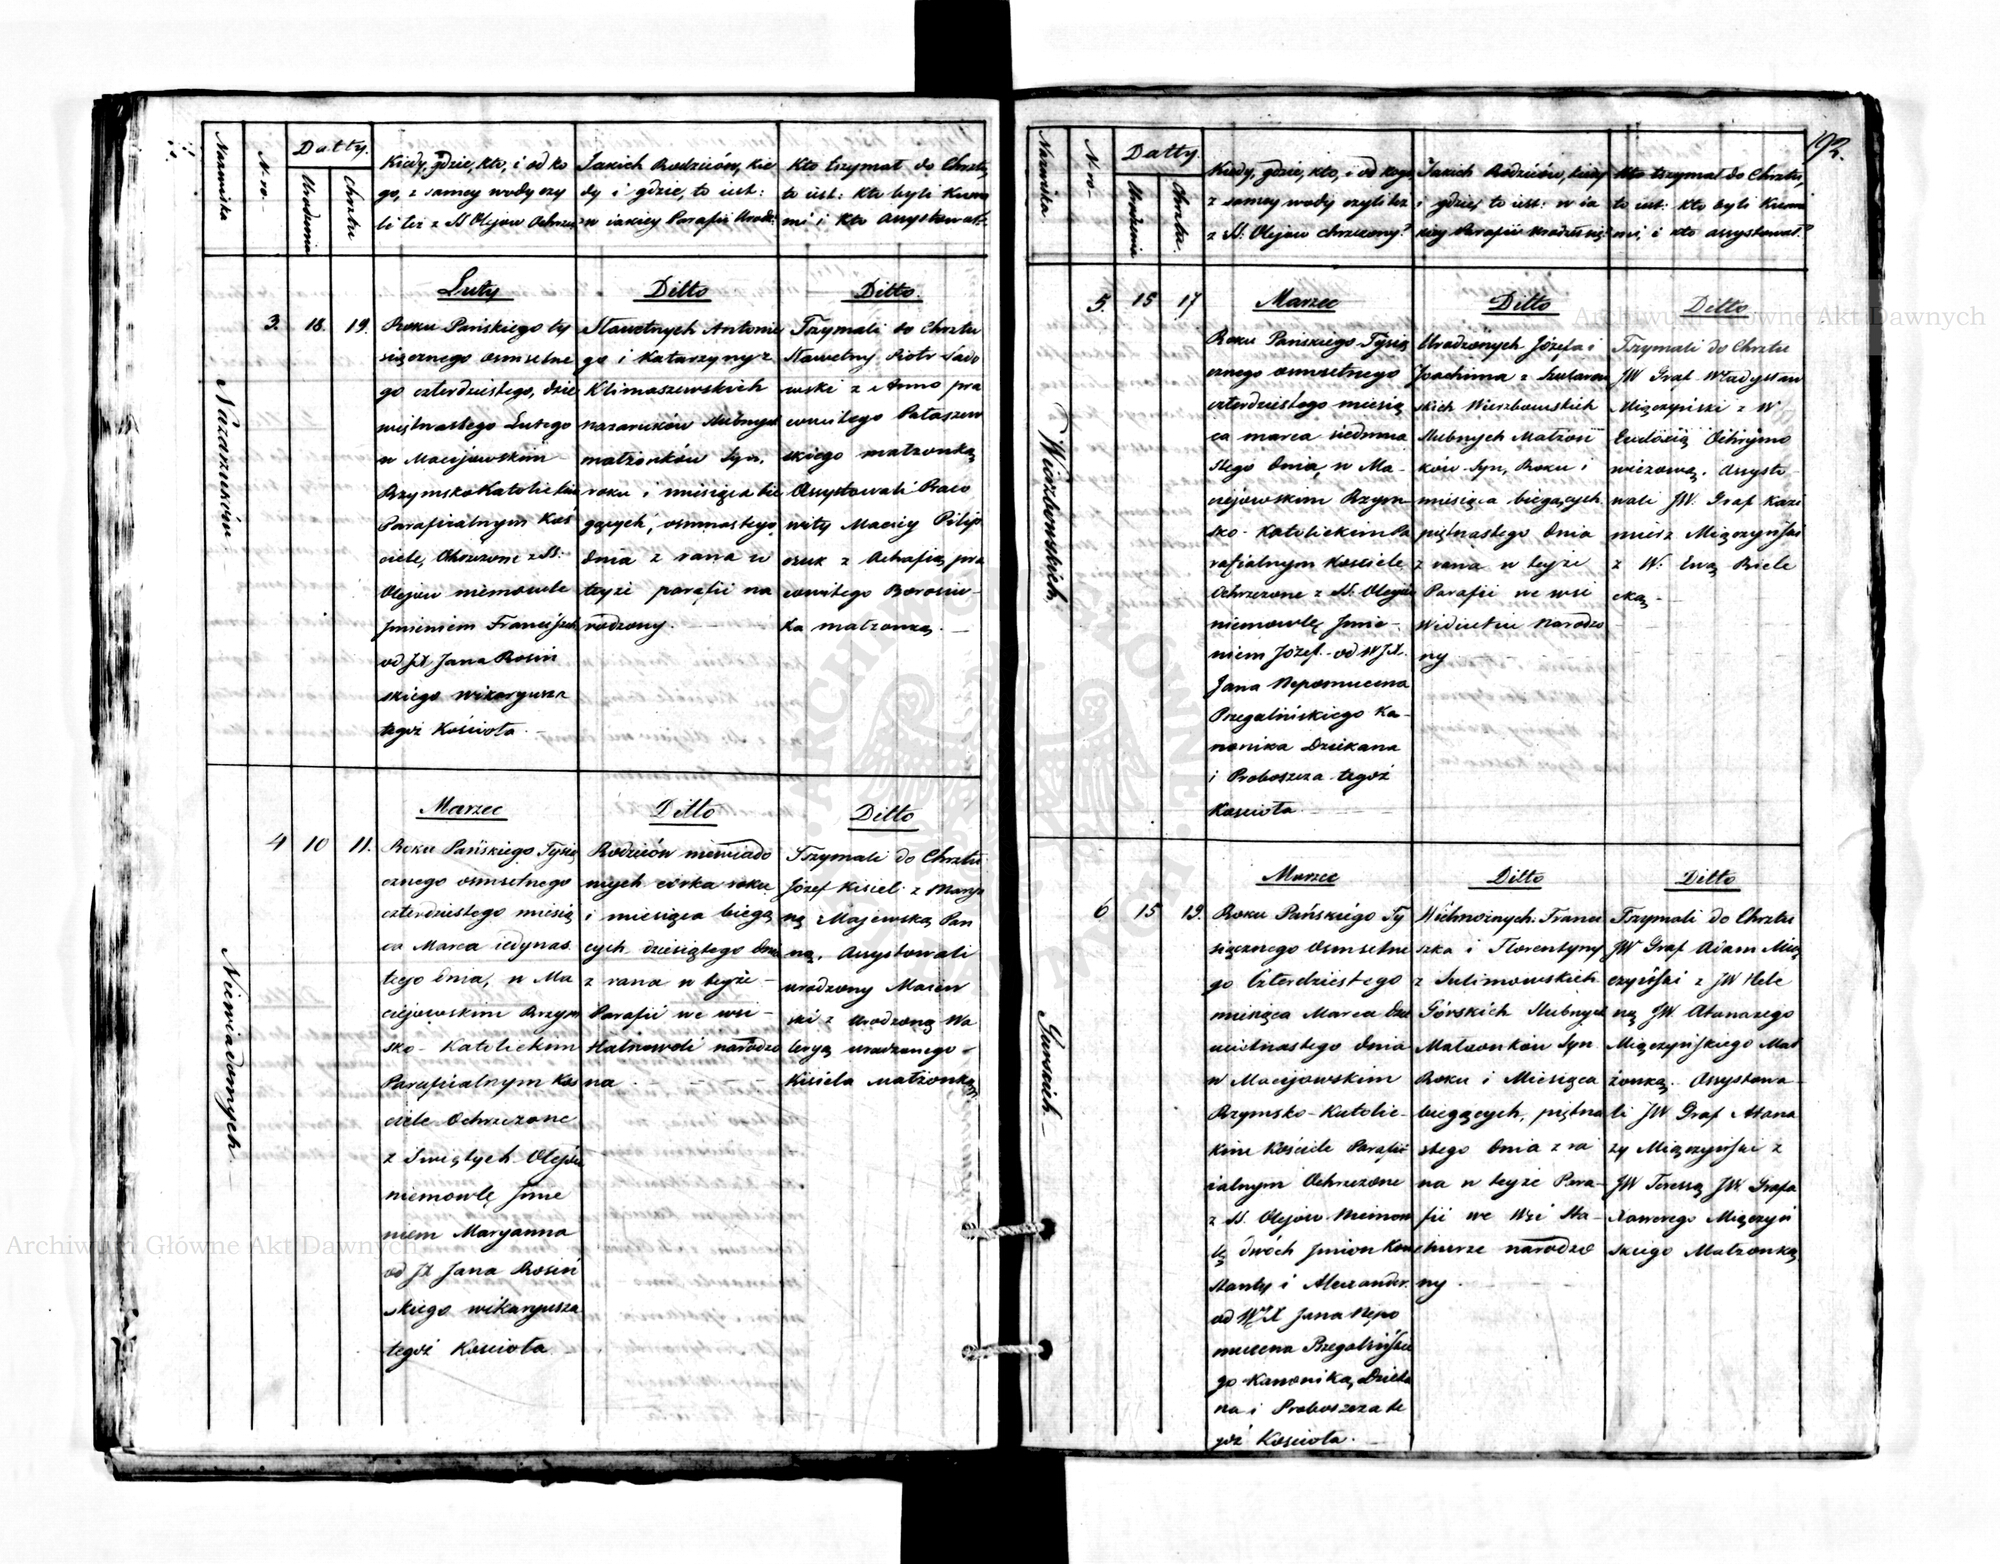 Nazwiska
N-ro
Datty.
Urodzenia
Chrztu
Kiedy, gdzie, kto, i od ko
go, z samey wody czy
li też z SS Olejów Ochrzc
Jakich Rodziców, kie
dy i gdzie, to iest:
w iakiey Parafii Urodz:
Kto trzymał do Chrztu,
to iest: Kto byli Kuma
mi i Kto Assystował:
Nazaruków
3. 18. 19.
Luty
Roku Pańskiego ty
siącznego osmsetne
go czterdziestego, dzie
więtnastego Lutego
w Maciejowskim
Rzymsko Katolickim
Parafialnym Koś
ciele, Ochrzczone z SS:
Olejów niemowle
Jmieniem Franciszek
od JX Jana Rosiń
skiego Wikaryusza
tegoż Kościoła.
Ditto
Sławetnych Antonie
go i Katarzyny z
Klimaszewskich
nazaruków Slubnych
małżonków Syn,
roku i miesiąca bie
gących, osmnastego
dnia z rana w
teyże parafii na
rodzony.
Ditto.
Trzymali do Chrztu
Sławetny Piotr Sado
wski z Anno pra
cowitego Pataszew
skiego małżonką
Assystowali Praco
wity Maciey Pilip
czuk z Achafią pra
cowitego Borosiu-
ka małzonką.
Niewiadomych
4 10 11.
Marzec
Roku Pańskiego Tysią
cznego osmsetnego
czterdziestego miesią
ca Marca iedynas
tego dnia, w Ma
ciejowskim Rzym
sko- Katolickim
Parafialnym Koś
ciele Ochrzczone
z Swiętych Olejów
niemowlę Jmie
niem Maryanna
od JX Jana Rosiń
skiego wikaryusza
tegoż Kościoła
Ditto
Rodziców niewiado
mych córka roku
i miesiąca biegą
cych dziesiątego dnia
z rana w teyże
Parafii we wsi
narodzo
na
Ditto
Trzymali do Chrztu
Józef Kisiel z Marya
ną Majewską Pan
ną. Assystowali
urodzony Macień
ski z Urodzoną Wa
leryą urodzonego
Kisiela małżonką
192.
Nazwiska
N-ro
Datty
Urodzenia
Chrztu.
Kiedy, gdzie, kto, i od kogo,
z samey wody czyli też
z SS: Olejów chrzczony?
Jakich Rodziców, kiedy
i gdzie, to iest: w ia
kiey Parafii urodził się?
Kto trzymał do Chrztu,
to iest: kto byli Kuma
mi, i kto assystował?
Wierzbowskich,
5. 15 17
Marzec
Roku Pańskiego Tysią
cznego osmsetnego
czterdziestego miesią
ca marca siedmna
stego dnia, w Ma-
ciejowskim Rzym-
sko- Katolickim Pa
rafialnym Kosciele
Ochrzczone z SS: Olejów
niemowlę Jmie-
niem Józef od WJX.
Jana Nepomucena
Przegalińskiego Ka-
nonika Dziekana
i Proboszcza tegoż
Kościoła
Ditto
Urodzonych Józefa i
Joachima z
skich Wierzbowskich
Slubnych Małżon
ków Syn, Roku i
miesiąca biegących
piętnastego dnia
z rana w teyże
Parafii we wsi
Widiutiu narodzo
ny
Ditto
Trzymali do Chrztu
JW Graf Władysław
Miączyński z W
Eudocią Ochrymo
wiczową. Assysto-
wali JW. Graf Kazi
mierz Miączyński
z W. Ewą Biele
cką
Gurscich
6 15 19.
Marzec
Roku Pańskiego Ty
siącznego Osmsetne
go Czterdziestego
miesiąca Marca dzie
więtnastego dnia
w Maciejowskim
Rzymsko-Katolic-
kim Kościele Parafi
ialnym Ochrzczone
z SS. Olejów Niemow
lę dwóch Jmion Kon
stanty i Alexander.
od WJX Jana Nepo
mucena Przegalińskie
go Kanonika, Dzieka
na i Proboszcza te
goż Kościoła.
Ditto
Wielmożnych: Franci
szka i Florentyny
z Sulimowskich
Górskich Slubnych
Małżonków Syn
Roku i Miesiąca
biegących, piętna
stego dnia z ra
na w teyże Para-
fii we Wsi Sta-
churze narodzo
ny
Ditto
Trzymali do Chrztu
JW Graf Adam Mią
czyński z JW Hele
ną JW Atanazego
Miączyńskiego Mał
żonką. Assystowa-
li JW Graf Atana
zy Miączyński z
JW Teressą JW Grafa
Xawerego Miączyń
skiego Małżonką
Archiwum Główne Akt Dawnych
Archiwum Główne Akt Dawnych